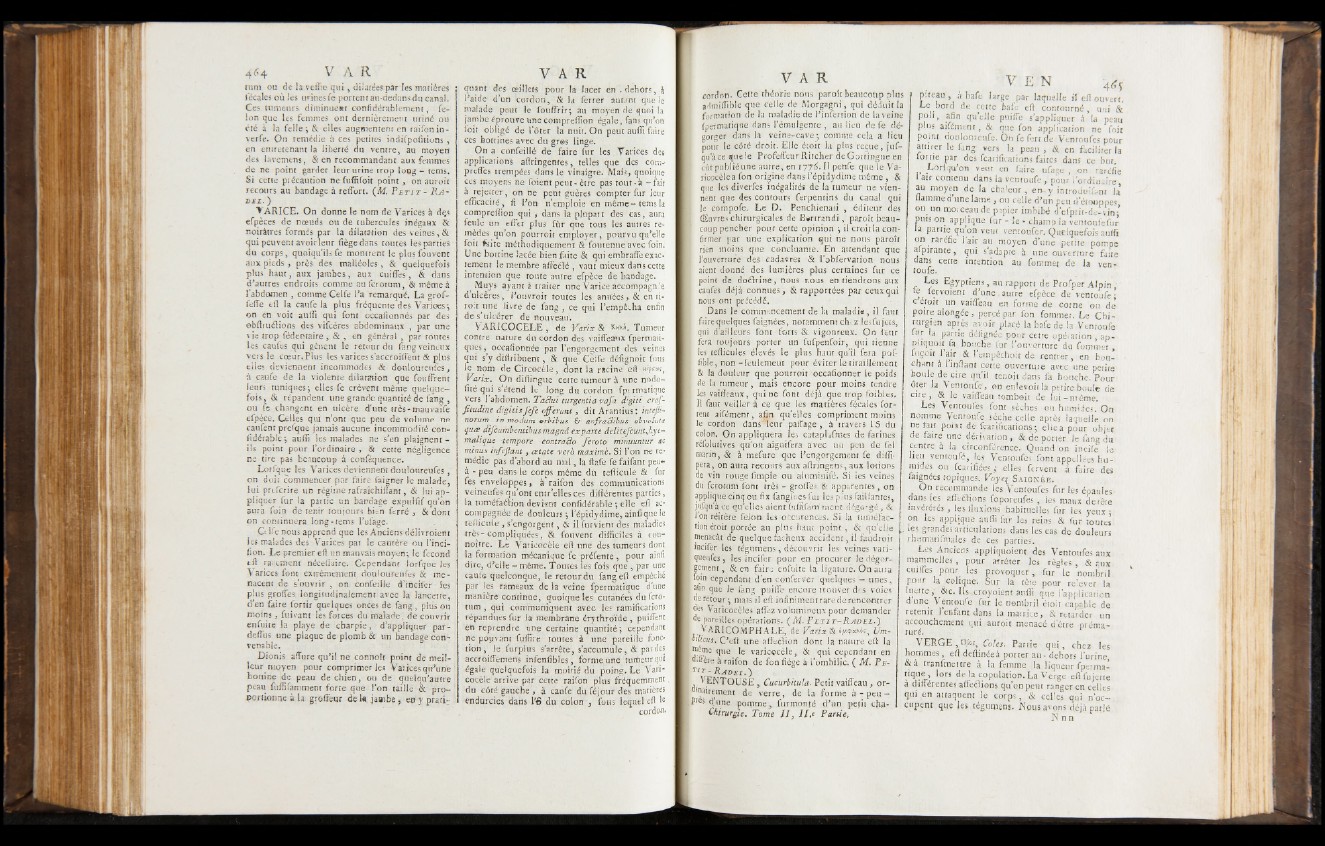 464 V A R
tum ou de la vessie qui, dilatées par les matières
fécales où les urines se portent au-dedans du canal.
Ces tumeurs diminuent considérablement, se-
lon que les femmes ont dernièrement uriné ou
été à la selle, & elles augmentent en raison in-
verse. On remédie à ces petites indispositions,
en entretenant la liberté du ventre, au moyen
des lavemens, & en recommandant aux femmes
de ne point garder leur urine trop long-tems.
Si cette précaution ne suffisoit point, on auroit
recours au bandage à ressort. (M. PETIT-RA-
DEL.)
VARICE. On donne le nom de Varices à des
espèces de nœuds ou de tubercules inégaux &
noirâtres formés par la dilatation des veines, &
qui peuvent avoir leur siège dans toutes les parties
du corps, quoiqu'ils se montrent le plus souvent
aux pieds, près des malléoles, & quelquefois
plus haut, aux jambes, aux cuisses, & dans
d'autres endroits comme au scrotum, & même à
l'abdomen, comme Celse l'a remarqué. La gros-
sesse est la cause la plus fréquente des Varices;
on en voit aussi qui sont occasionnés par des
obstructions des viscères abdominaux, par une
vie trop sédentaire, &, en général, par toutes
les causes qui gênent le retour du sang veineux
vers le cœur. Plus les varices s'accroissent & plus
elles deviennent incommodes & douloureuses,
à cause de la violente dilatation que souffrent
leurs tuniques; elles se crèvent même quelque-
fois, & répandent une grande quantité de sang,
ou se changent en ulcère d'une très-mauvaise
espèce. Celles qui n'ont que peu de volume ne
causent presque jamais aucune incommodité con-
sidérable; aussi les malades ne s'en plaignent-
ils point pour l'ordinaire, & cette négligence
ne tire pas beaucoup à conséquence.
Lorsque les Varices deviennent douloureuses,
on doit commencer par faire saigner le malade,
lui prescrire un régime rafraîchissant, & lui ap-
pliquer sur la partie un bandage expulsif qu'on
aura soin de tenir toujours bien serré, & dont
on continuera long-tems l'usage.
Celse nous apprend que les Anciens délivroient
les malades des Varices par le cautère ou l'inci-
sion. Le premier est un mauvais moyen; le second
est rarement nécessaire. Cependant lorsque les
Varices sont extrêmement douloureuses & me-
nacent de s'ouvrir, on conseille d'inciser les
plus grosses longitudinalement avec la lancette,
d'en faire sortir quelques onces de sang, plus ou
moins, suivant les forces du malade, de couvrir
ensuite la playe de charpie, d'appliquer par-
dessus une plaque de plomb & un bandage con-
venable.
Dionis assure qu'il ne connoît point de meil-
leur moyen pour comprimer les Varices qu'une
bottine de peau de chien, ou de quelqu'autre
peau suffisamment forte que l'on taille & pro-
portionne à la grosseur de la jambe, en y prati-
V A R
quant des œillets pour la lacer en dehors, à
l'aide d'un cordon, & la serrer autant que le
malade peut le souffrir; au moyen de quoi la
jambe éprouve une compression égale, sans qu'on
soit obligé de l'ôter la nuit. On peut aussi faire
ces bottines avec du gros linge.
On a conseillé de faire sur les Varices des
applications astringentes, telles que des com-
presses trempées dans le vinaigre. Mais, quoique
ces moyens ne soient peut-être pas tout-à-fait
à rejetter, on ne peut guères compter sur leur
efficacité, si l'on n'emploie en même-tems la
compression qui, dans la plûpart des cas, aura
seule un effet plus sûr que tous les autres re-
mèdes qu'on pourroit employer, pourvu qu'elle
soit faite méthodiquement & soutenue avec soin.
Une bottine lacée bien faite & qui embrasse exac-
tement le membre affecté, vaut mieux dans cette
intention que toute autre espèce de bandage.
Muys ayant à traiter une Varice accompagnée
d'ulcères, l'ouvroit toutes les années, & en ti-
roit une livre de sang, ce qui l'empêcha enfin
de s'ulcérer de nouveau.
VARICOCELE, de Varix & Κηλή, Tumeur
contre nature du cordon des vaisseaux spermati-
ques, occasionnée par l'engorgement des veines
qui s'y distribuent, & que Celse désignoit sous
le nom de Circocèle, dont la racine est
Varix. On distingue cette tumeur à une nodo-
sité qui s'étend le long du cordon spermatique
vers l'abdomen. Tactui turgentia vasa digiti cras-
situdine digitis sese offerunt, dit Arantius: intesti-
norum in modum orbibus & anfractibus obvoluta
quæ discumbentibus magnâ ex parte delitescunt, hye-
malique tempore contracto scroto minuuntur ac
minus infestant, æstate verò maximè. Si l'on ne re-
médie pas d'abord au mal, la stase se faisant peu-
à-peu dans le corps même du testicule & sur
ses enveloppes, à raison des communications
veineuses qu'ont entr'elles ces différentes parties,
la tuméfaction devient considérable; elle est ac-
compagnée de douleurs; l'épidydime, ainsi que le
testicule, s'engorgent, & il survient des maladies
très-compliquées, & souvent difficiles à con-
noître. Le Varicocèle est une des tumeurs dont
la formation mécanique se présente, pour ainsi
dire, d'elle-même. Toutes les fois que, par une
cause quelconque, le retour du sang est empêché
par les rameaux de la veine spermatique d'une
manière continue, quoique les cutanées du scro-
tum, qui communiquent avec les ramifications
répandues sur la membrane érythroïde, puissent
en reprendre une certaine quantité; cependant
ne pouvant suffire toutes à une pareille fonc-
tion, le surplus s'arrête, s'accumule, & par des
accroissemens insensibles, forme une tumeur qui
égale quelquefois la moitié du poing. Le Vari-
cocèle arrive par cette raison plus fréquemment
du côté gauche, à cause du séjour des matières
endurcies dans l'S du colon, sous lequel est le
cordon.
V A R
cordon. Cette théorie nous paroît beaucoup plus
admissible que celle de Morgagni, qui déduit la
formation de la maladie de l'insertion de la veine
spermatique dans l'émulgente, au lieu de se dé-
gorger dans la veine-cave; comme cela a lieu
pour le côté droit. Elle étoit la plus reçue, jus-
qu'à ce que le Professeur Ritcher de Gottingue en
eût publié une autre, en 1776. Il pense que le Va-
ricocèle a son origine dans l'épidydime même, &
que les diverses inégalités de la tumeur ne vien-
nent que des contours serpentins du canal qui
le compose. Le D. Penchienati, éditeur des
Œuvres chirurgicales de Bertrandi, paroît beau-
coup pencher pour cette opinion; il croit la con-
firmer par une explication qui ne nous paroît
rien moins que concluante. En attendant que
l'ouverture des cadavres & l'observation nous
aient donné des lumières plus certaines sur ce
point de doctrine, nous nous en tiendrons aux
causes déjà connues, & rapportées par ceux qui
nous ont précédé.
Dans le commencement de la maladie, il faut
faire quelques saignées, notamment chez les sujets,
qui d'ailleurs sont forts & vigoureux. On leur
fera toujours porter un suspensoir, qui tienne
les testicules élevés le plus haut qu'il sera pos-
sible, non-seulement pour éviter le tiraillement
& la douleur que pourroit occasionner le poids
de la tumeur, mais encore pour moins tendre
les vaisseaux, qui ne sont déjà que trop foibles.
Il faut veiller à ce que les matières fécales sor-
tent aisément, afin qu'elles compriment moins
le cordon dans leur passage, à travers l'S du
colon. On appliquera les cataplasmes de farines
résolutives qu'on aiguisera avec un peu de sel
marin, & à mesure que l'engorgement se dissi-
pera, on aura recours aux astringens, aux lotions
de vin rouge simple ou aluminée. Si les veines
du scrotum sont très-grosses & apparentes, on
applique cinq ou six sangsues sur les plus saillantes,
jusqu'à ce qu'elles aient suffisamment dégorgé, &
l'on réitère selon les occurences. Si la tuméfac-
tion étoit portée au plus haut point, & qu'elle
menaçât de quelque fâcheux accident, il faudroit
inciser les tégumens, découvrir les veines vari-
queuses, les inciser pour en procurer le dégor-
gement, & en faire ensuite la ligature. On aura
soin cependant d'en conserver quelques-unes,
afin que le sang puisse encore trouver des voies
de retour; mais il est infiniment rare de rencontrer
des Varicocèles assez volumineux pour demander
de pareilles opérations. (M. PETIT-RADEL.)
VARICOMPHALE, de Varix & ὀμφαλός, Um-
bilicus. C'est une affection dont la nature est la
même que le varicocèle, & qui cependant en
diffère à raison de son siège à l'ombilic. (M. PE-
TIT-RADEL.)
VENTOUSE, Cucurbitula. Petit vaisseau, or-
dinairement de verre, de la forme à-peu-
près d'une pomme, surmonté d'un petit cha-
Chirurgie. Tome II, II.e Partie.
V E N 465
piteau, à base large par laquelle il est ouvert.
Le bord de cette base est contourné, uni &
poli, afin qu'elle puisse s'appliquer à la peau
plus aisément, & que son application ne soit
point douloureuse. On se sert de Ventouses pour
attirer le sang vers la peau, & en faciliter la
sortie par des scarifications faites dans ce but.
Lorsqu'on veut en faire usage, on raréfie
l'air contenu dans la ventouse, pour l'ordinaire,
au moyen de la chaleur, en y introduisant la
flamme d'une lame, ou celle d'un peu d'étouppes,
ou un morceau de papier imbibé d'esprit-de-vin;
puis on applique sur-le-champ la ventouse sur
la partie qu'on veut ventouser. Quelquefois aussi
on raréfie l'air au moyen d'une petite pompe
aspirante, qui s'adapte à une ouverture faite
dans cette intention au sommet de la ven-
touse.
Les Egyptiens, au rapport de Prosper Alpin,
se servoient d'une autre espèce de ventouse;
c'étoit un vaisseau en forme de corne ou de
poire alongée, percé par son sommet. Le Chi-
rurgien après avoir placé la base de la Ventouse
sur la partie désignée pour cette opération, ap-
pliquoit sa bouche sur l'ouverture du sommet,
suçoit l'air & l'empêchoit de rentrer, en bou-
chant à l'instant cette ouverture avec une petite
boule de cire qu'il tenoit dans sa bouche. Pour
ôter la Ventouse, on enlevoit la petite boule de
cire, & le vaisseau tomboit de lui-même.
Les Ventouses sont sèches ou humides. On
nomme Ventouse sèche celle après laquelle on
ne fait point de scarifications; elle a pour objet
de faire une dérivation, & de porter le sang du
centre à la circonférence. Quand on incise le
lieu ventousé, les Ventouses sont appellées hu-
mides ou scarifiées; elles servent à faire des
saignées topiques. Voyez SAIGNÉE.
On recommande les Ventouses sur les épaules
dans les affections soporeuses, les maux de tête
invétérés, les fluxions habituelles sur les yeux;
on les applique aussi sur les reins & sur toutes
les grandes articulations dans les cas de douleurs
rhumatismales de ces parties.
Les Anciens appliquoient des Ventouses aux
mammelles, pour arrêter les règles, & aux
cuisses pour les provoquer, sur le nombril
pour la colique. Sur la tête pour relever la
luette, &c. Ils croyoient aussi que l'application
d'une Ventouse sur le nombril étoit capable de
retenir l'enfant dans la matrice, & retarder un
accouchement qui auroit menacé d'être préma-
turé.
VERGE, Coles. Partie qui, chez les
hommes, est destinée à porter au-dehors l'urine,
& à transmettre à la femme la liqueur sperma-
tique, lors de la copulation. La Verge est sujette
à différentes affections qu'on peut ranger en celles
qui en attaquent le corps, & celles qui n'oc-
cupent que les tégumens. Nous avons déjà parlé
N n n